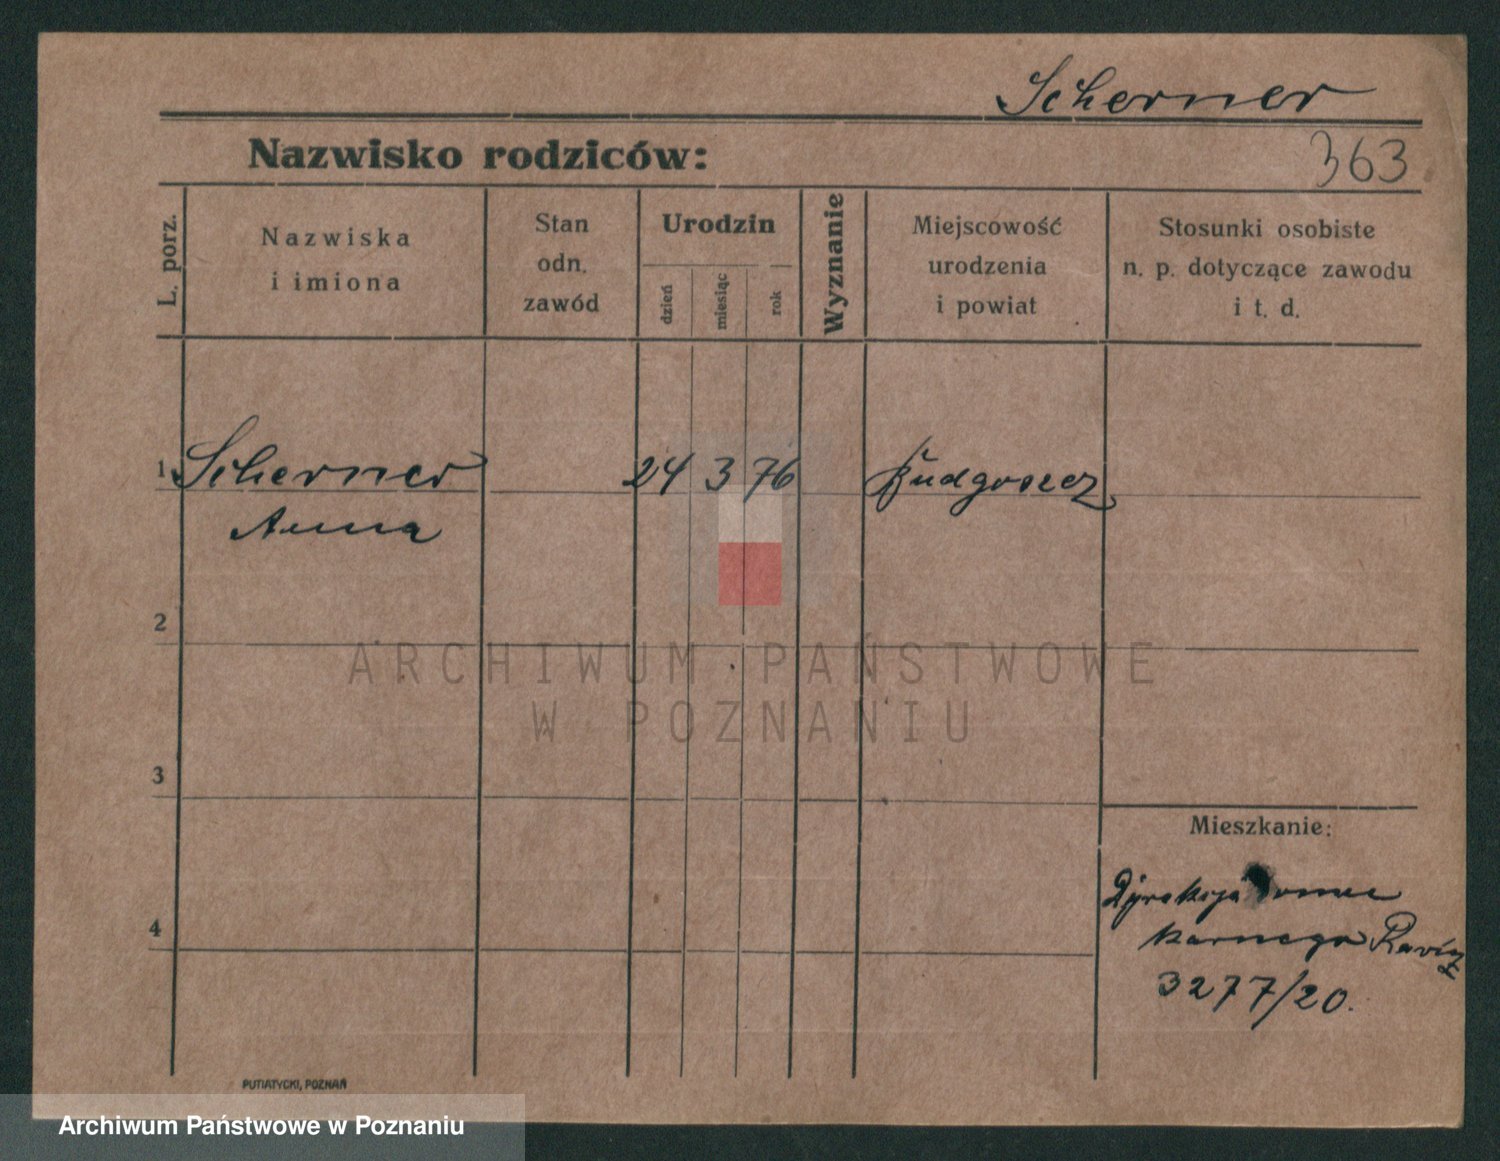 Scherner
Nazwisko rodziców:
363
L. porz.
Nazwiska
i imiona
Stan
odn.
zawód
Urodzin
dzień
miesiąc
rok
Wyznanie
Miejscowość
urodzenia
i powiat
Stosunki osobiste
n. p. dotyczące zawodu
i t. d.
1 Scherner 24 3 76 Budgoszcz
Anna
2
ARCHIWUM PAŃSTWOWE
W POZNANIU
3
Mieszkanie:
Dyrekcja
4
karnego Rawicz
3277/20.
PUTIATYCKI, POZNAŃ
Archiwum Państwowe w Poznaniu